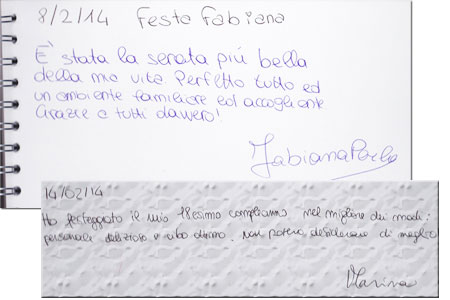 8/2/14 Festa Fabiana
E' stata la serata più bella
della mia vita Perfetto tutto ed
un ambiente familiare ed accogliente
Grazie a tutti davvero!
Fabiana
14/02/14
Ho festeggiato il mio 18esimo compleanno nel migliore dei modi:
personale delizioso e cibo ottimo. Non potevo desiderare di meglio
Marina